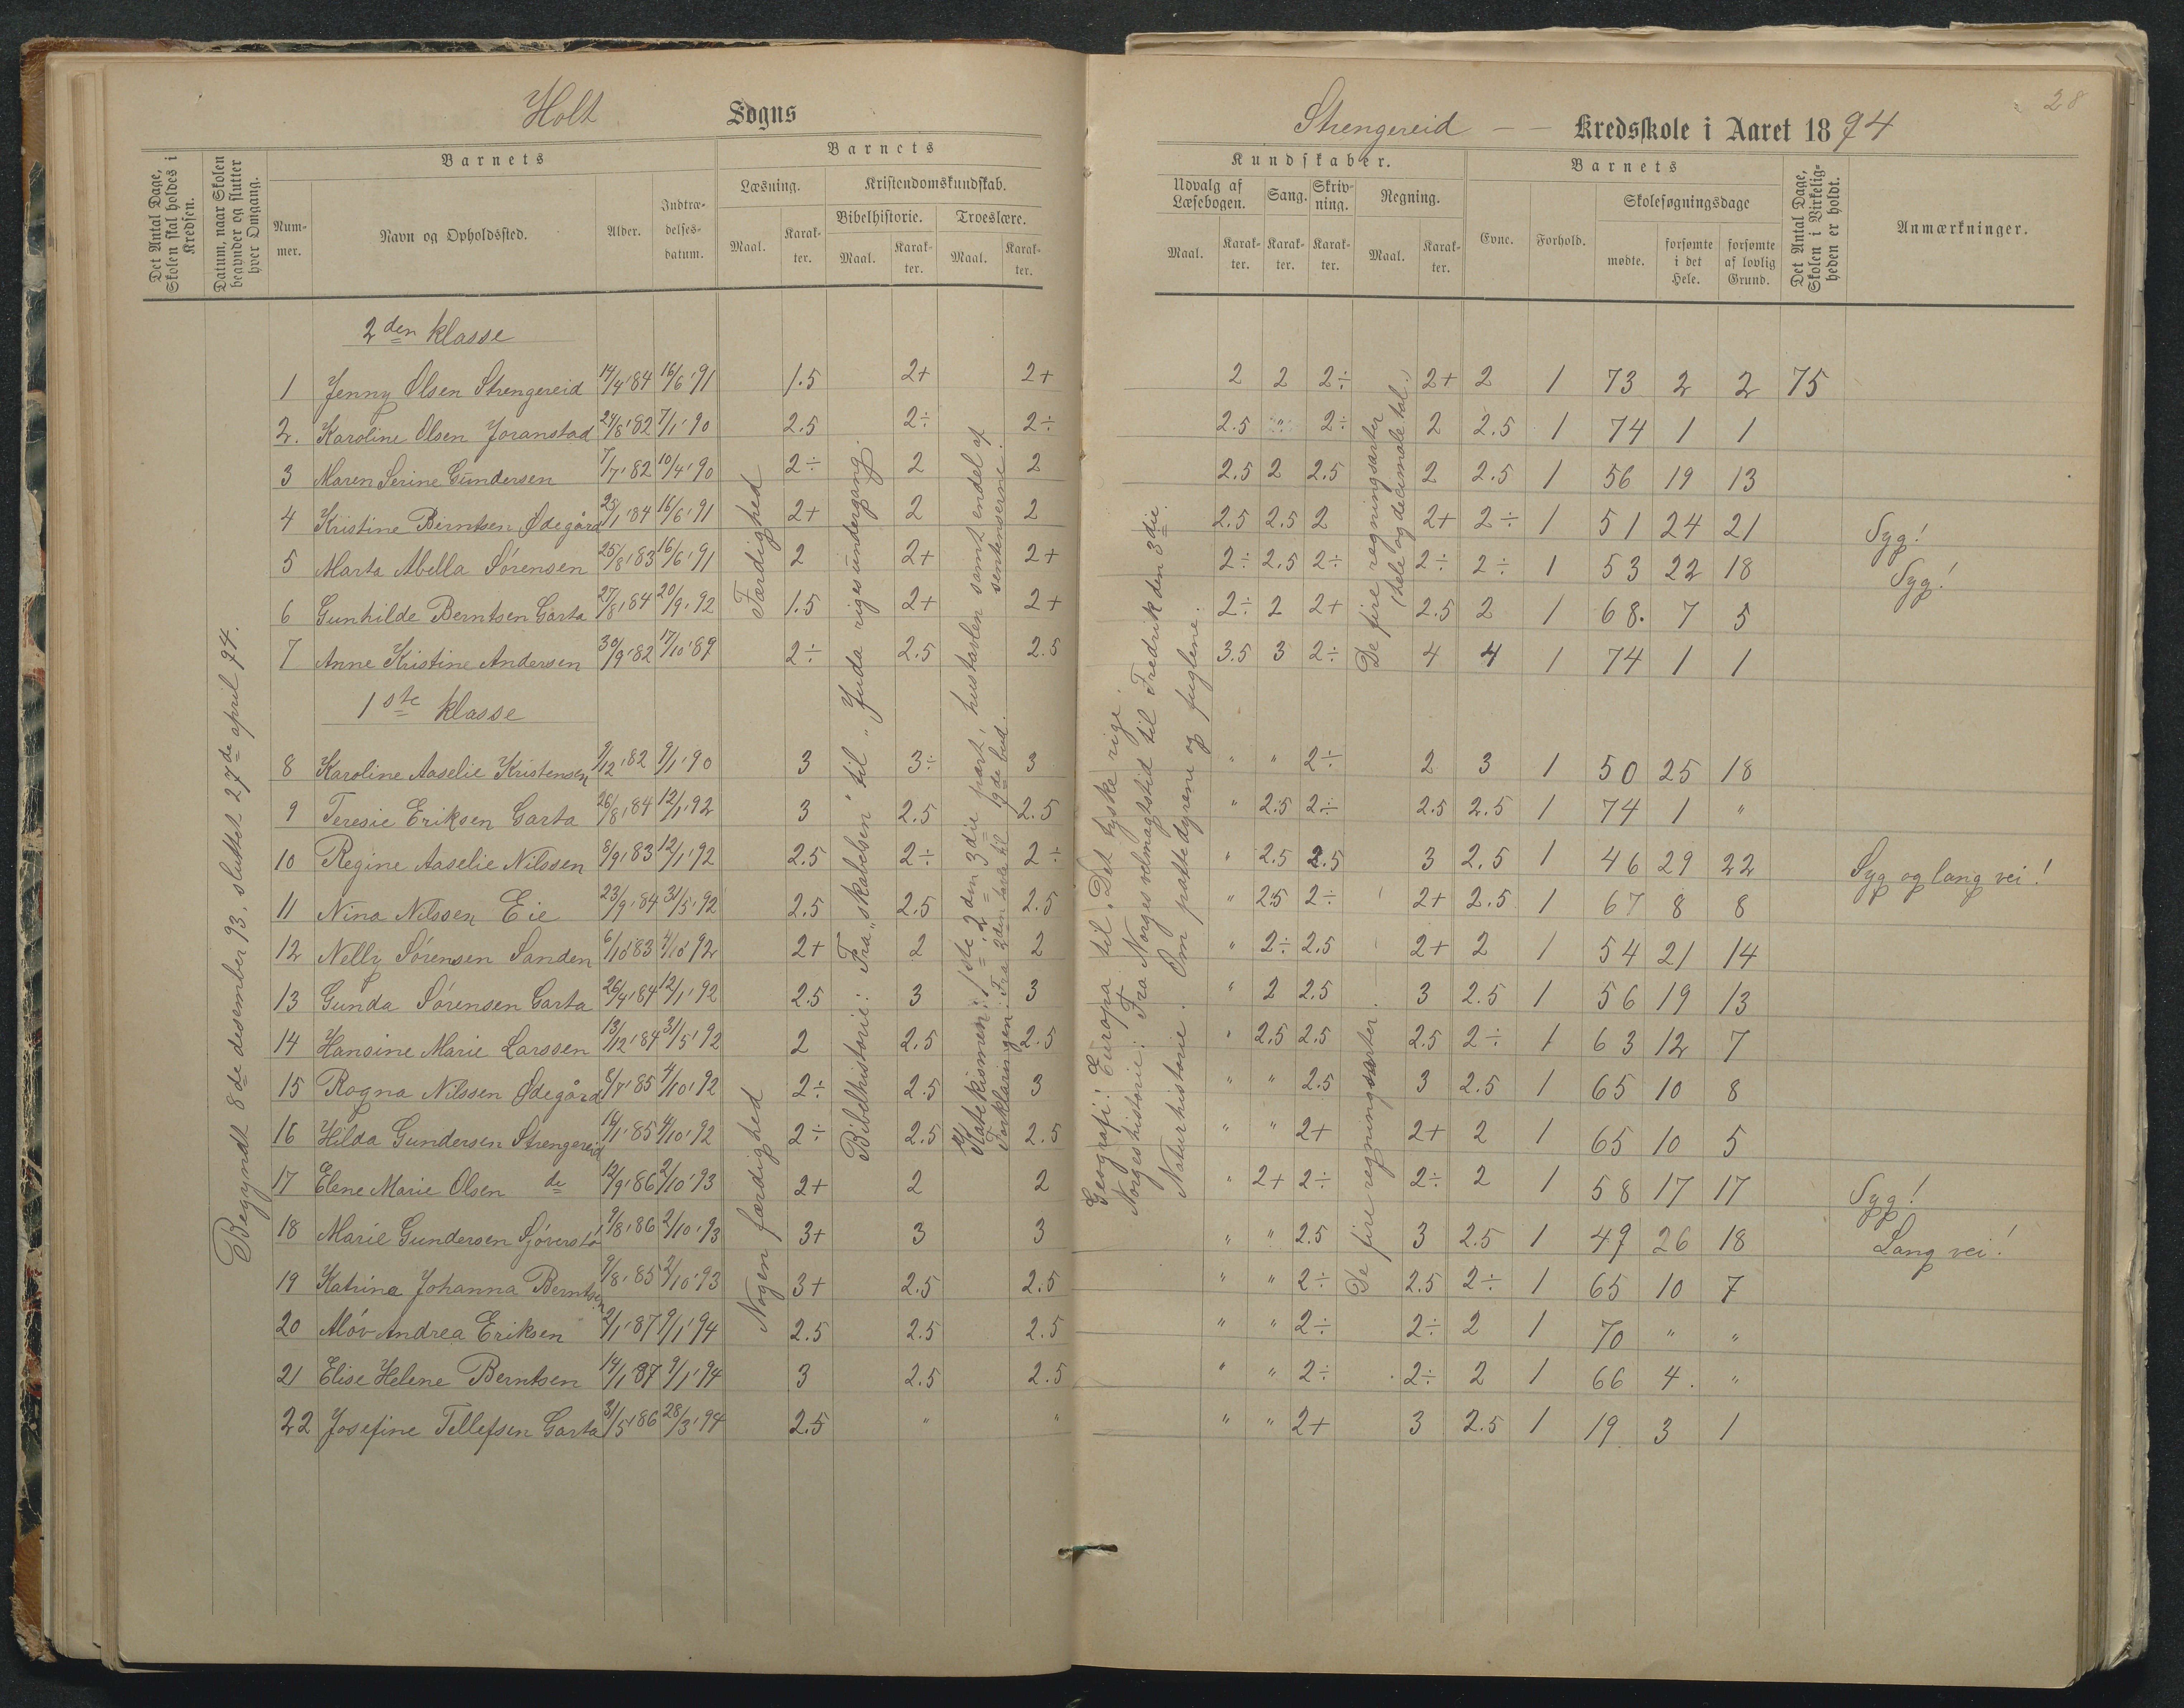 Holt Sogns
Det Antal Dage, Skolen skal holdes i Kredsen.
Datum, naar Skolen begynder og slutter hver Omgang.
Barnets
Nummer.
Navn og Opholdssted.
Alder.
Indtrædelsesdatum.
Barnets
Læsning.
Maal.
Karakter.
Kristendomskundskab.
Bibelhistorie.
Maal.
Karakter.
Troeslære.
Maal.
Karakter.
Begyndt 8de desember 93, sluttet 27de april 94.
2den klasse
1 Jenny Olsen Strengereid 14/4'84 16/6'91 1.5 2+ 2+
2. Karoline Olsen Joranstad 24/8'82 7/1'90 2.5 2÷ 2÷
3 Maren Serine Gundersen 7/7'82 10/4'90 2÷ 2 2
4 Kristine Berntsen Ødegård 25/1'84 16/6'91 2+ 2 2
5 Marta Abella Sørensen 25/8'83 16/6'91 2 2+ 2+
6 Gunhilde Berntsen Garta 27/8'84 20/9'92 1.5 2+ 2+
7 Anne Kristine Andersen 30/9'82 17/10'89 2÷ 2.5 2.5
1ste klasse
8 Karoline Aaselie Kristensen 9/12'82 9/1'90 3 3÷ 3
9 Teresie Eriksen Garta 26/8'84 12/1'92 3 2.5 2.5
10 Regine Aaselie Nilssen 8/9'83 12/1'92 2.5 2÷ 2÷
11 Nina Nilssen Eie 23/9'84 31/5'92 2.5 2.5 2.5
12 Nelly Sørensen Sanden 6/10'83 4/10'92 2+ 2 2
13 Gunda Sørensen Garta 26/4'84 12/1'92 2.5 3 3
14 Hansine Marie Larssen 13/12'84 31/5'92 2 2.5 2.5
15 Ragna Nilssen Ødegård 8/7'85 4/10'92 2÷ 2.5 3
16 Hilda Gundersen Strengereid 14/1'85 4/10'92 2÷ 2.5 2.5
17 Elene Marie Olsen do 12/9'86 2/10'93 2+ 2 2
18 Marie Gundersen 9/8'86 2/10'93 3+ 3 3
19 Katrine Johanna Berntsen 9/8'85 2/10'93 3+ 2.5 2.5
20 Aløv Andrea Eriksen 2/1'87 9/1'94 2.5 2.5 2.5
21 Elise Helene Berntsen 14/1'87 9/1'94 3 2.5 2.5
22 Josefine Tellefsen Garta 31/5'86 28/3'94 2.5 " "
Færdighed
Nogen færdighed
Bibelhistorie: Fra „skabelsen" til „Juda riges undergang.
Katekismen: 1ste, 2den 3die part, hustavlen samt endel af sentenserne.
Forklaringen: Fra 3den part til 9de bud.
28
Strengereid — — Kredsskole i Aaret 1894
Kundskaber.
Udvalg af Læsebogen.
Maal.
Karakter.
Sang.
Karakter.
Skrivning.
Karakter.
Regning.
Maal.
Karakter.
Barnets
Evne.
Forhold.
Skolesøgningsdage
mødte.
forsømte i det Hele.
forsømte af lovlig Grund.
Det Antal Dage, Skolen i Virkeligheden er holdt.
Anmærkninger.
2 2 2÷ 2+ 2 1 73 2 2 75
2.5 " 2÷ 2 2.5 1 74 1 1
2.5 2 2.5 2 2.5 1 56 19 13
2.5 2.5 2 2+ 2÷ 1 51 24 21 Syg!
2÷ 2.5 2÷ 2÷ 2÷ 1 53 22 18 Syg!
2÷ 2 2+ 2.5 2 1 68. 7 5
3.5 3 2÷ 4 4 1 74 1 1
" " 2÷ 2 3 1 50 25 18
" 2.5 2÷ 2.5 2.5 1 74 1 "
" 2.5 2.5 3 2.5 1 46 29 22 Syg og lang vei!
" 2.5 2÷ 2+ 2.5 1 67 8 8
" 2÷ 2.5 2+ 2 1 54 21 14
" 2 2.5 3 2.5 1 56 19 13
" 2.5 2.5 2.5 2÷ 1 63 12 7
" " 2.5 3 2.5 1 65 10 8
" " 2+ 2+ 2 1 65 10 5
" 2+ 2÷ 2÷ 2 1 58 17 17 Syg!
" " 2.5 3 2.5 1 49 26 18 Lang vei!
" " 2÷ 2.5 2÷ 1 65 10 7
" " 2÷ 2÷ 2 1 70 " "
" " 2÷ 2÷ 2 1 66 4. "
" " 2+ 3 2.5 1 19 3 1
Geografi: Europa til „Det tyske rige.
Norgeshistorie: Fra Norges velmagtstid til Fredrik den 3die.
Naturhistorie. Om pattedyrene og fuglene.
De fire regningsarter (hele og decimale tal.)
De fire regningsarter.